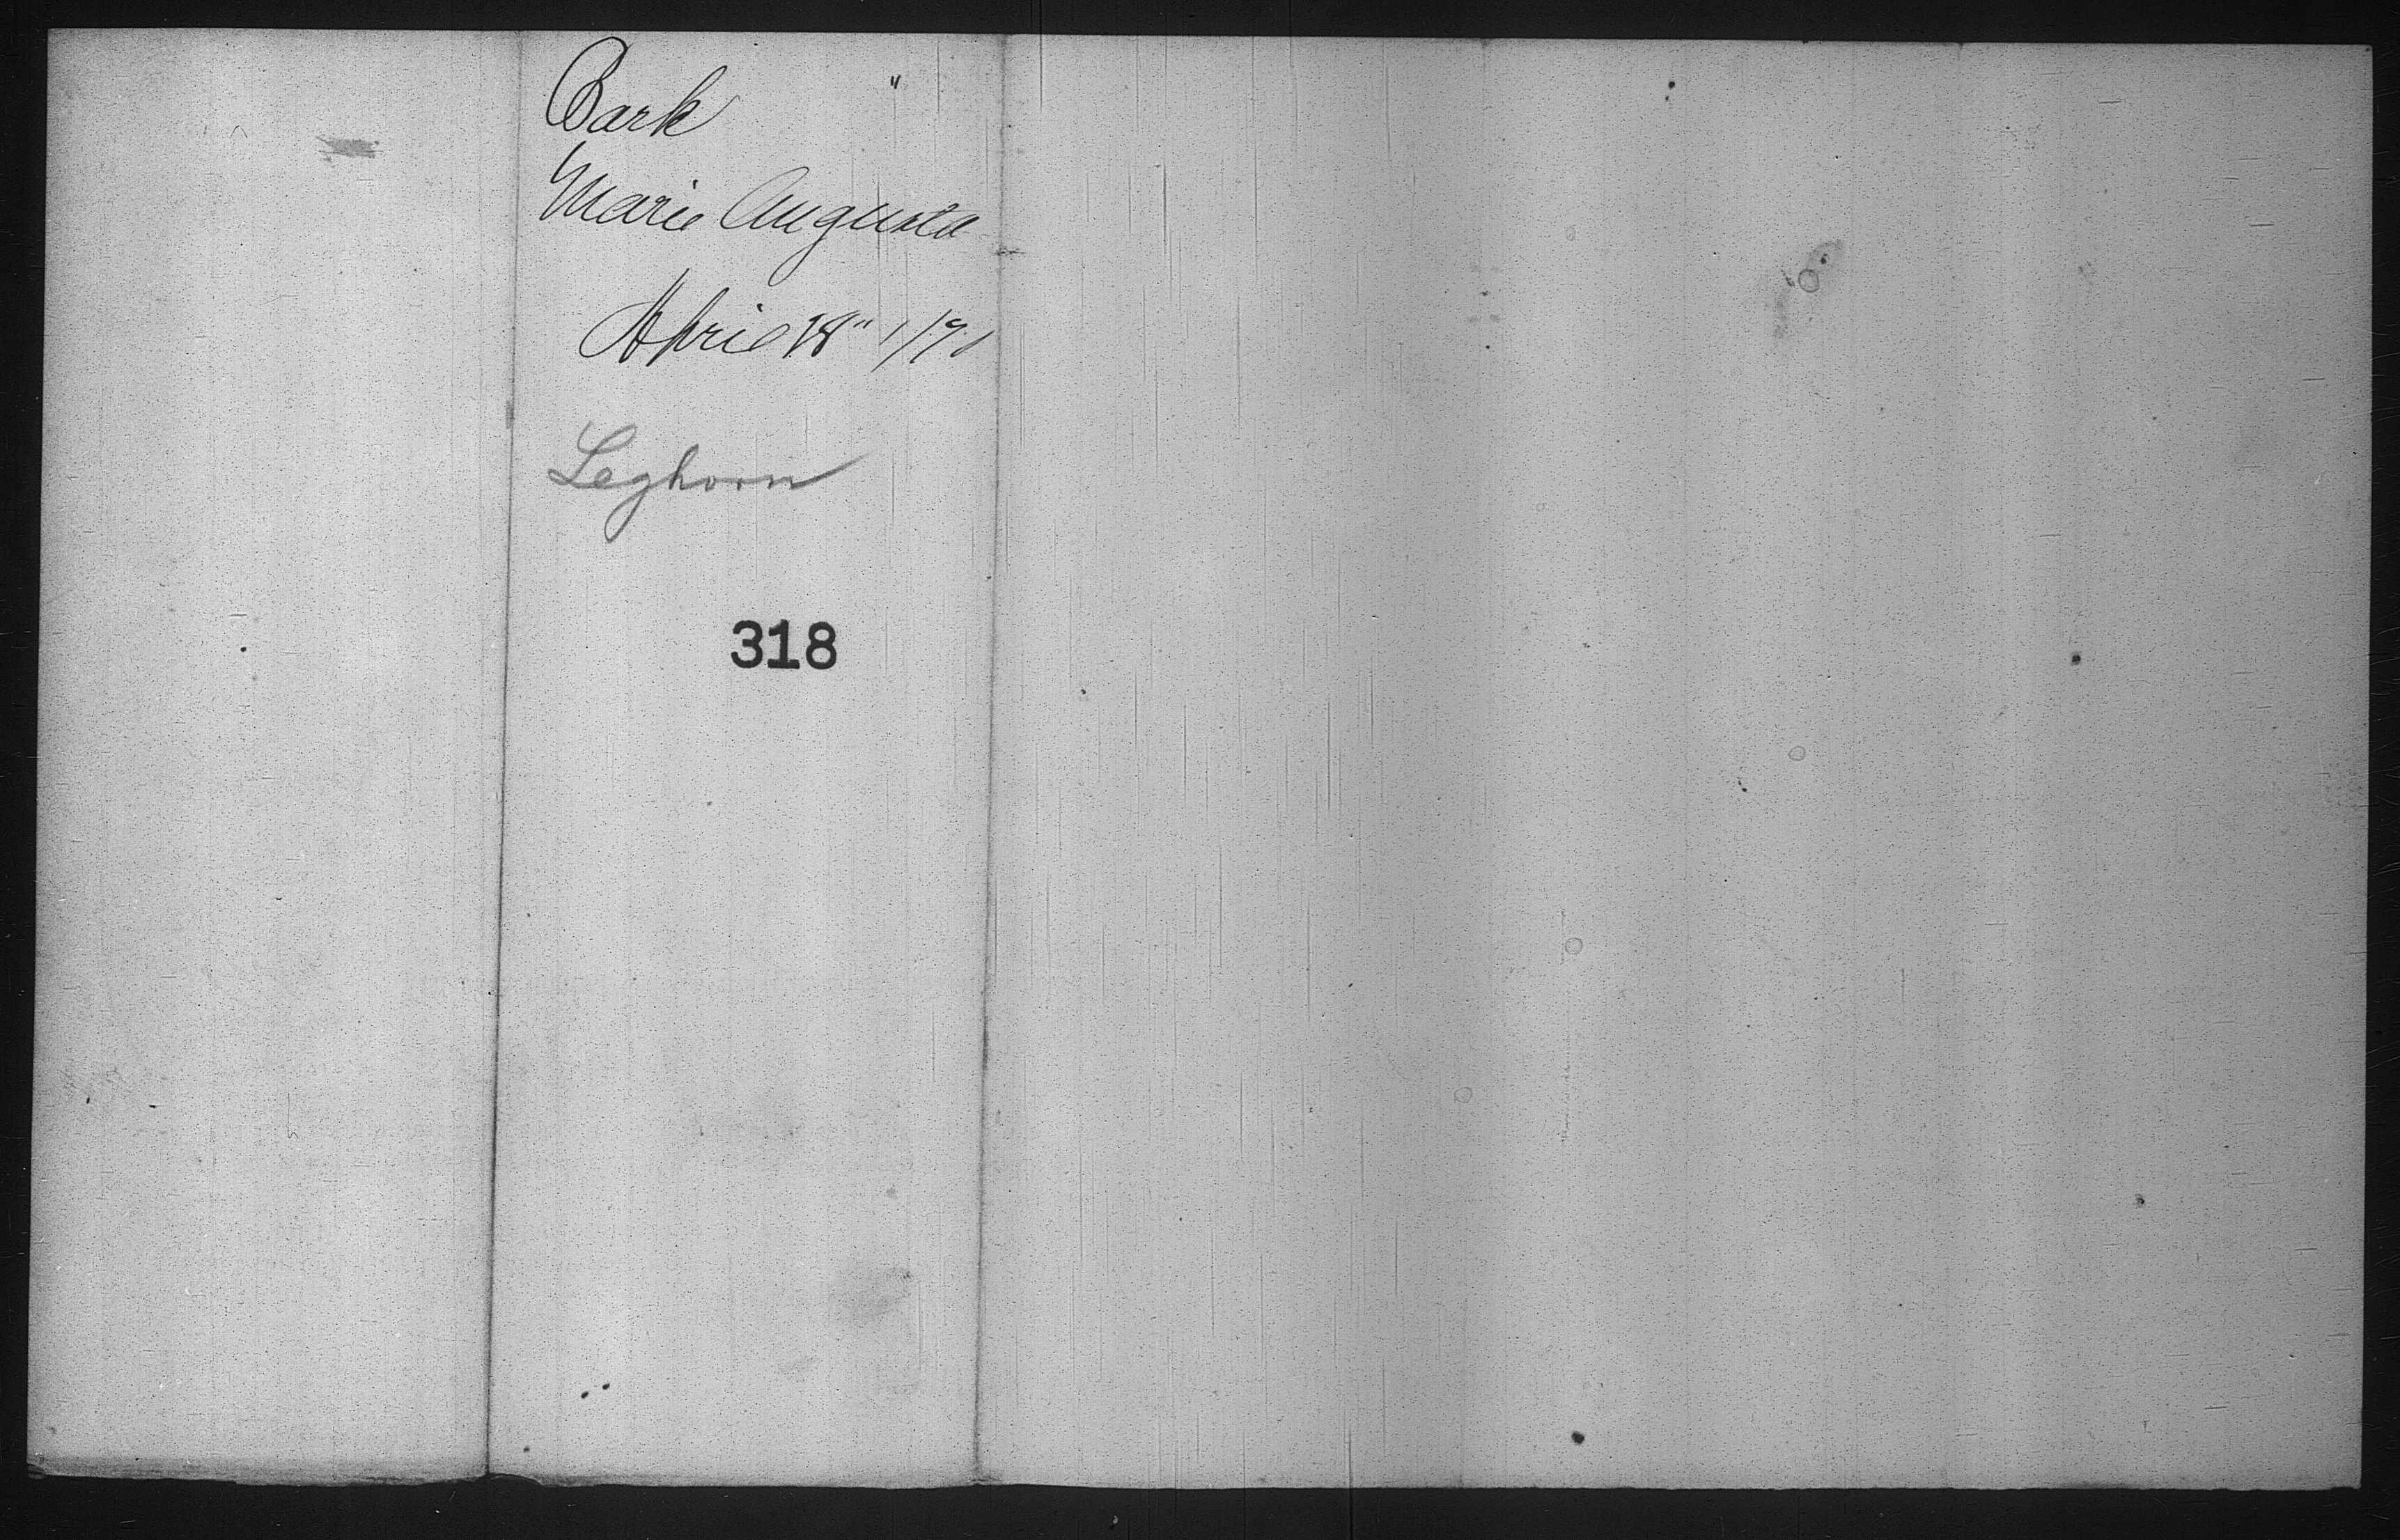 Bark "
Marie Augusta
April 18"
Leghorn
318